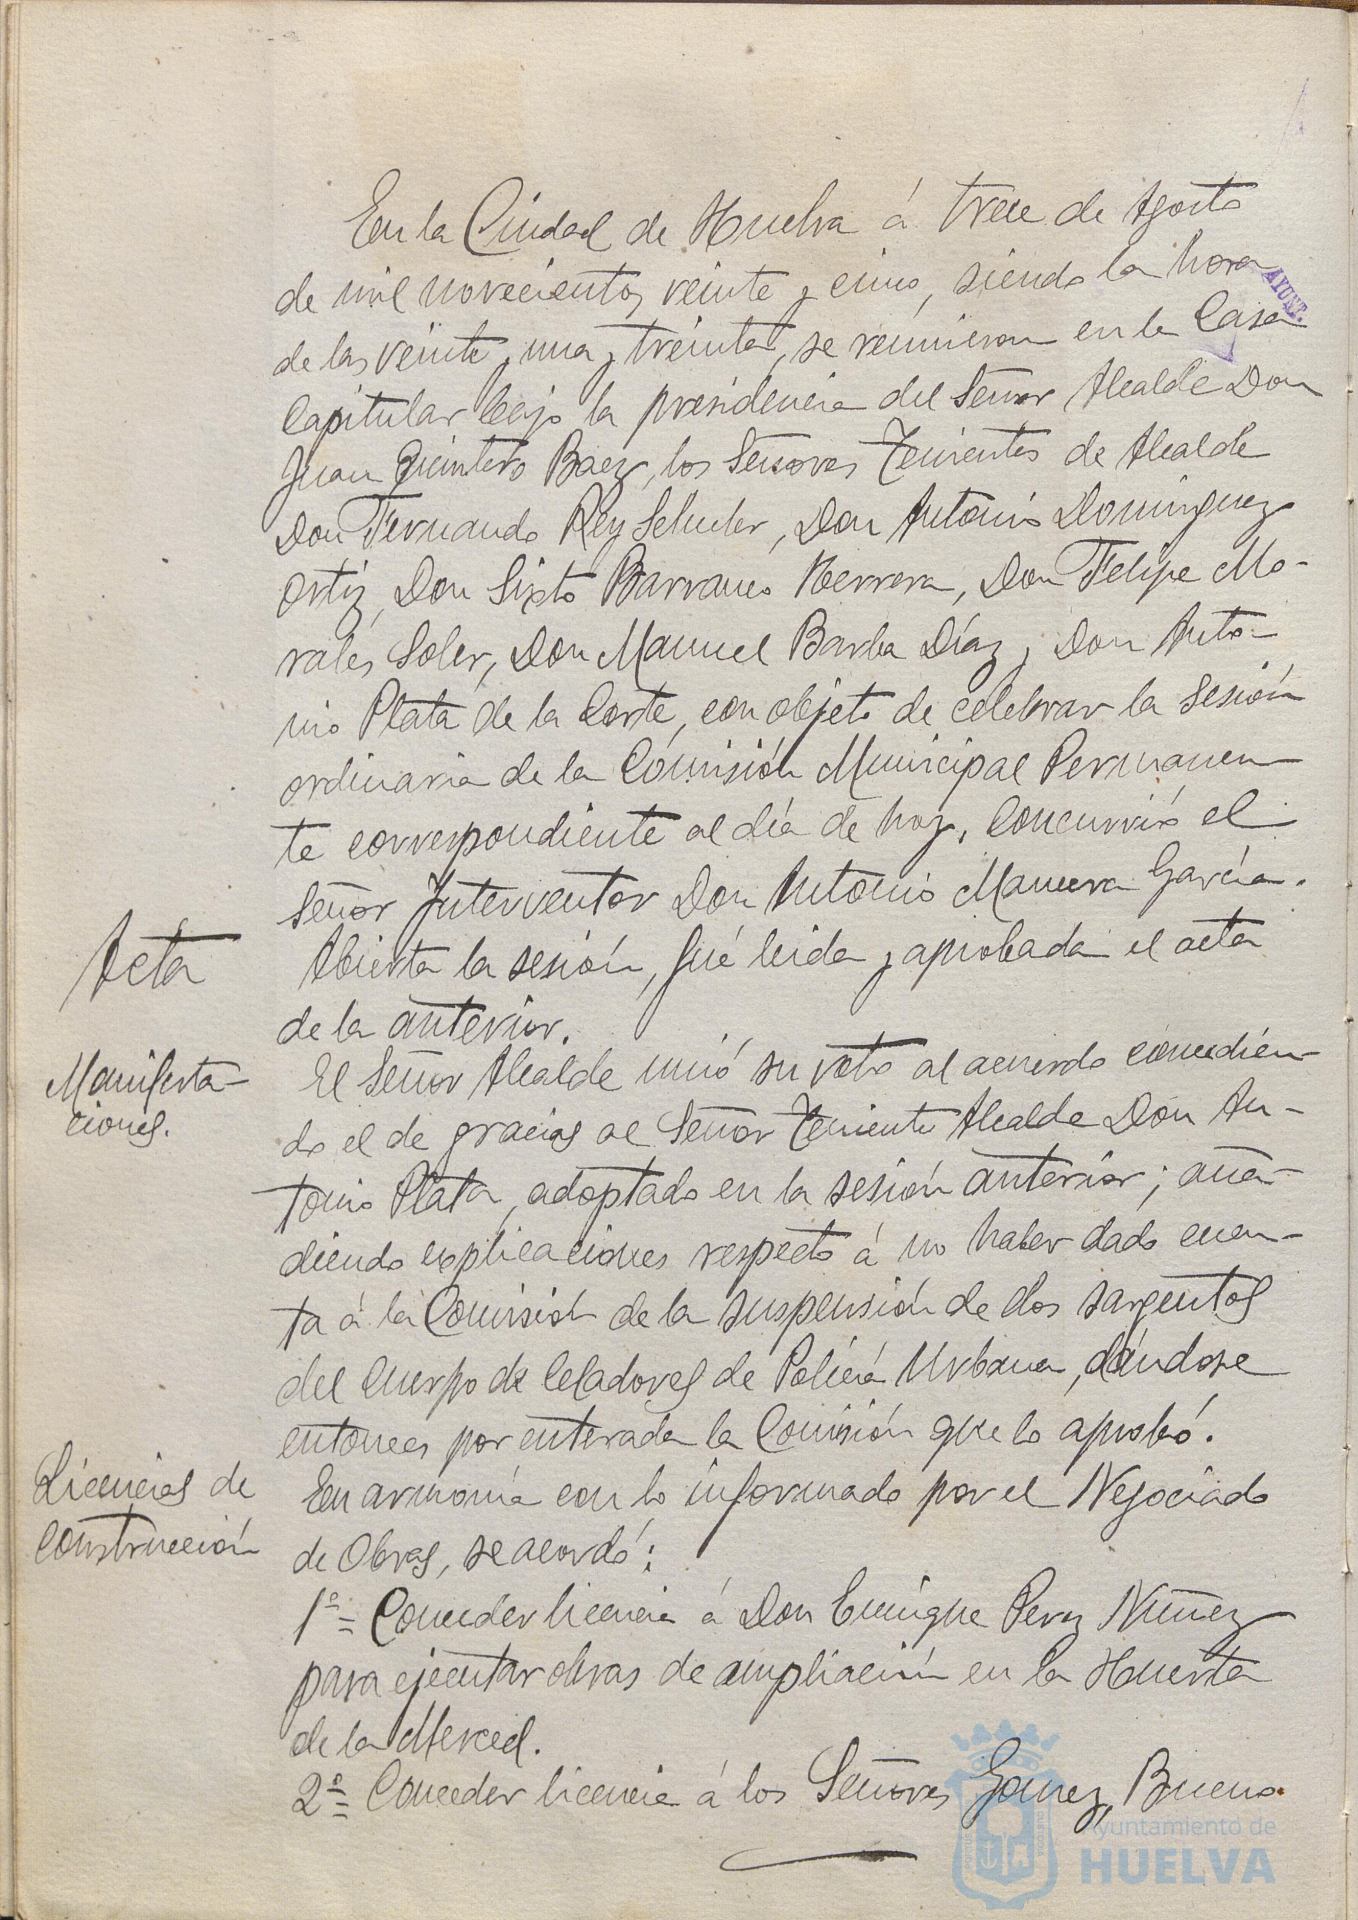 En la Ciudad de Huelva á trece de Agosto
de mil novecientos veinte y cinco, siendo la hora
AYUNT.
de las veinte y una y treinta, se reunieron en la Casa
Capitular bajo la presidencia del Señor Alcalde Don
Juan Quintero Baez, los Señores Tenientes de Alcalde
Don Fernando Rey Schuler, Don Antonio Dominguez
Ortiz, Don Sixto Barranco Herrera, Don Felipe Mo-
rales Soler, Don Manuel Barba Díaz y Don Anto-
nio Plata de la Corte, con objeto de celebrar la sesión
ordinaria de la Comisión Municipal Permanen
te correspondiente al día de hoy. Concurrió el
Señor Interventor Don Antonio García.
Acta
Abierta la sesión, fué leida y aprobada el acta
de la anterior.
Manifesta-
ciones.
El Señor Alcalde unió su voto al acuerdo concedien-
do el de gracias al Señor Teniente Alcalde Don An-
tonio Plata, adoptado en la sesión anterior; aña-
diendo explicaciones respecto á no haber dado cuen-
ta á la Comisión de la suspensión de dos sargentos
del Cuerpo de Celadores de Policía Urbana, dándose
entonces por enterada la Comisión que lo aprobó.
Licencias de
construcción
En armonía con lo informado por el Negociado
de Obras, se acordó:
1º= Conceder licencia á Don Enrique Perez Nuñez
para ejecutar obras de ampliación en la Huerta
de la Merced.
2º= Conceder licencia á los Señores Gomez, Bueno
Ayuntamiento de
HUELVA